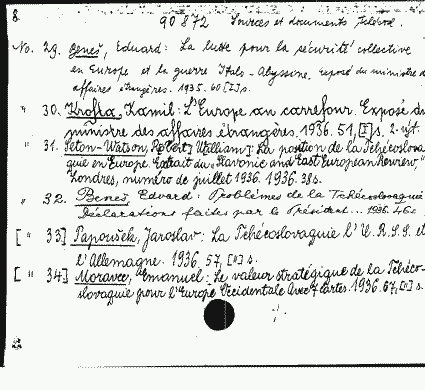 8.
90 872 Sources et documents Tchécosl.
No. 29. Beneš, Eduard: La lutte pour la sécurité collective
en Europe et la guerre Italo-Abyssine, exposé du ministre d
affaires étrangères. 1935. 60 [I] s.
" 30. Krofta, Kamil: L'Europe au carrefour. Exposé du
ministre des affaires étrangères. 1936. 51, [I] s. 2. výt.
" 31. Seton-Watson, Robert William]: La position de la Tchécoslova
quie en Europe. Extrait du "Slavonic and East European Review,"
Londres, numéro de juillet 1936. 1936. 38 s.
" 32. Beneš, Edvard: Problèmes de la Tchécoslovaquie
Déclarations faites par le Président... 1936. 46 s.
[ " 33] Papoušek, Jaroslav: La Tchécoslovaquie l'U.R.S.S. et
l'Allemagne. 1936. 57, [II] s.
[ " 34] Moravec, Emanuel: Le valeur stratégique de la Tchéco-
slovaquie pour l'Europe Occidentale Avec 7 cartes. 1936. 67, [II] s.